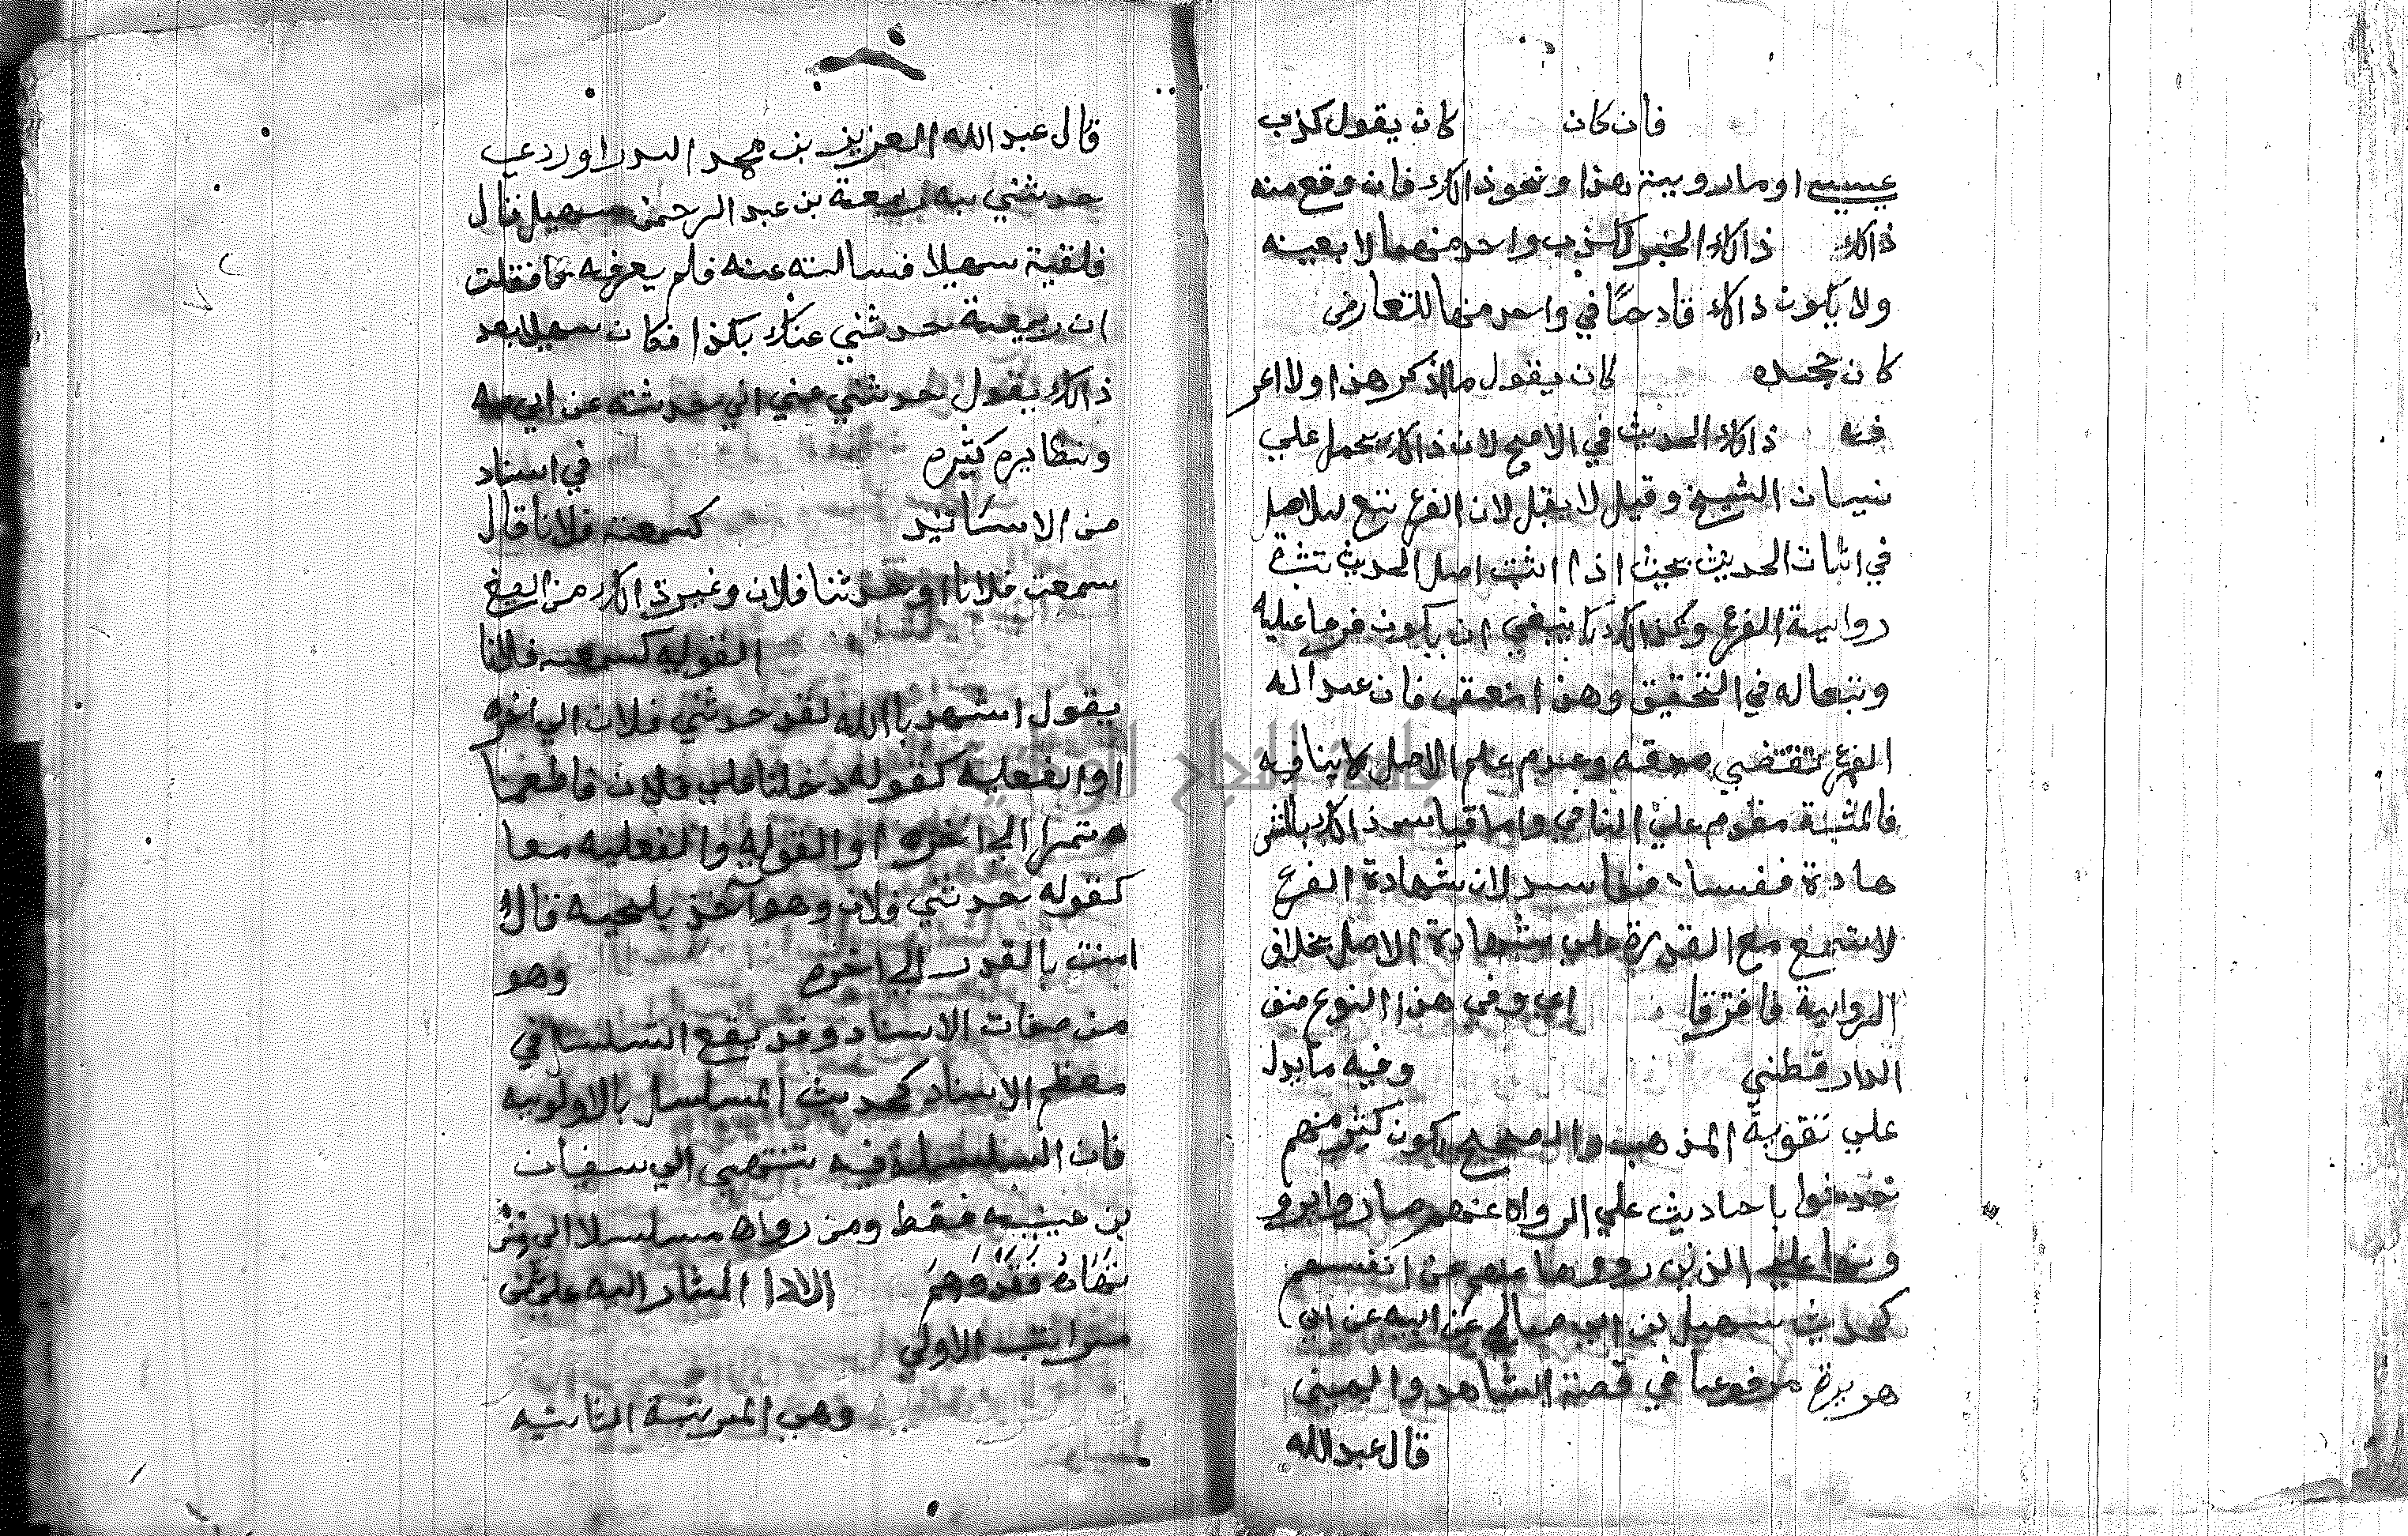 فان كان كان يقول كذب
عيي او ما رويت هذا ونحو ذالك فان وقع منه
ذالك ذالك الخبر لكذب واحد منهما لا بعينه
ولا يكون ذالك قادحًا في واحد منها للتعارض
كان جحده كان يقول ما اذكر هذا ولا اعر
فه ذالك الحديث في الاصح لان ذالك يحمل علي
نسيان الشيخ وقيل لا يقبل لان الفرع تبع للاصل
في اثبات الحديث بحيث اذا اثبت اصل الحديث تثبت
رواية الفرع وكذالك ينبغي ان يكون فرعا عليه
وتبعا له في التحقيق وهذا متعقب فان عدالة
الفرع تقتضي صدقه وعدم علم الاصل لا ينافيه
فالمثبت مقدم علي النافي واما قياس ذالك بالش
هادة ففاسد لان شهادة الفرع
لا تسمع مع القدرة علي شهادة الاصل بخلاف
الرواية فافترقا اي وفي هذا النوع صنف
الدارقطني وفيه ما يدل
علي تقوية المذهب الصحيح لكون كثير منهم
حدثوا باحاديث علي الرواه عنهم صاروا يرو
ونها الذين رووها عنهم عن انفسهم
كحديث سهيل بن ابي صالح عن ابيه عن ابي
هريرة مرفوعا في قصة الشاهد واليمين
قال عبد الله
قال عبد الله العزيز بن محمد الدراوردي
حدثني به ربيعة بن عبد الرحمن سهيل قال
فلقيت سهيلا فسالته عنه فلم يعرفه فقلت
ان ربيعة حدثني عنك بكذا فكان سهيل بعد
ذالك يقول حدثني عني اني حدثته عن ابي به
ونظايره كثيره في اسناد
من الاسانيد كسمعت فلانا قال
سمعت فلانا او حدثنا فلان وغير ذالك من الصيغ
القوليه كسمعت فلانا
يقول اشهد بالله لقد حدثني فلان الي اخره
او الفعليه كقوله دخلنا علي فلان فاطعمنا
تمرا الي اخره او القوليه والفعليه معا
كقوله حدثني فلان وهو آخذ بلحيته قال
امنت بالقدر الي اخره وهو
من صفات الاسناد وقد يقع التسلسل في
معظم الاسناد كحديث المسلسل بالاوليه
فان السلسله فيه تنتهي الي سفيان
بن عيينه فقط ومن رواه مسلسلا الي من
تهاه فقد وهم الادا المشار اليه علي ثمن
مراتب الاولي
وهي المرتبة الثانيه